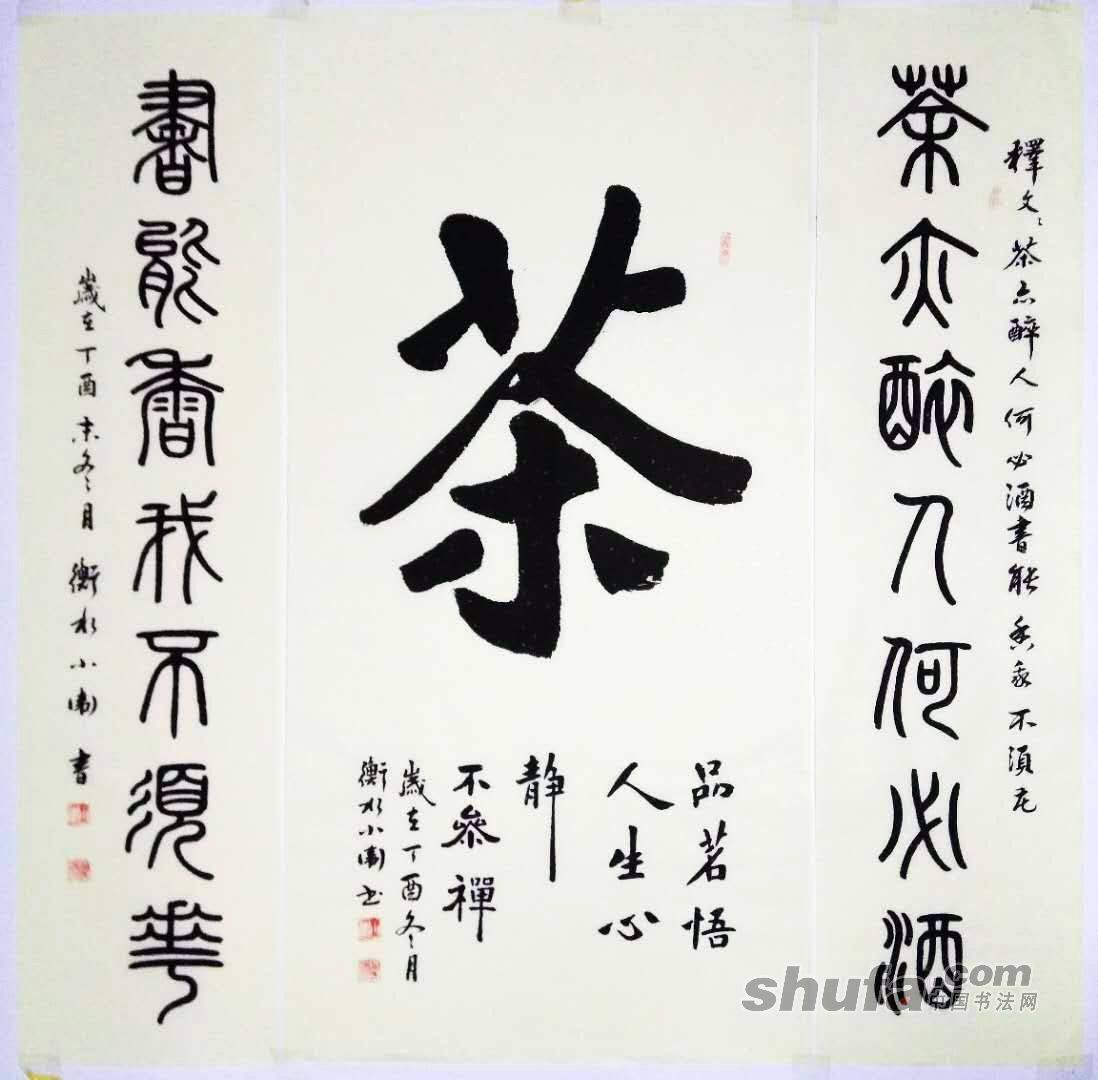 釋文：茶亦醉人何必酒書能香我不須花
茶亦醉人何必酒
茶
品茗悟
人生心
静
不參禪
歲在丁酉冬月
衡水小书
書能香我不須華
歲在丁酉末冬月 衡水小書
shufa.com
中国书法网